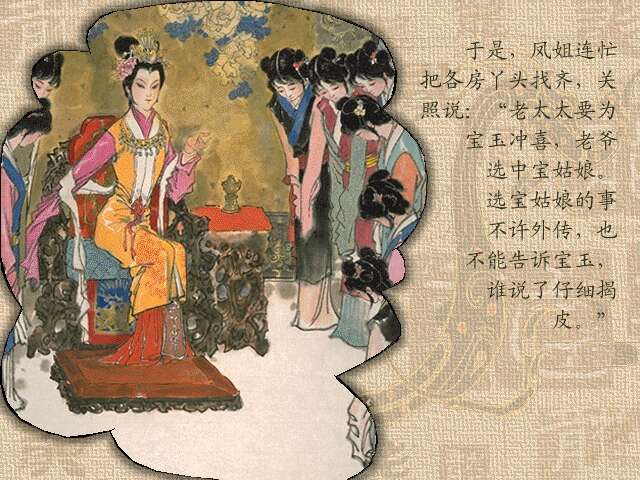 于是，凤姐连忙
把各房丫头找齐，关
照说：“老太太要为
宝玉冲喜，老爷
选中宝姑娘。
选宝姑娘的事
不许外传，也
不能告诉宝玉，
谁说了仔细揭
皮。”